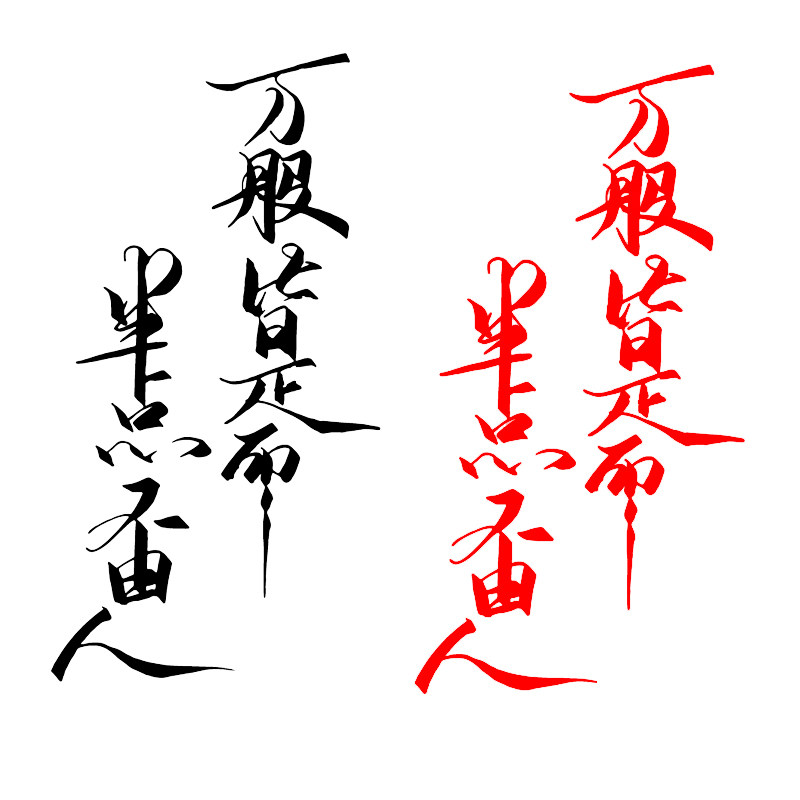 万般皆是命
半点不由人
万般皆是命
半点不由人